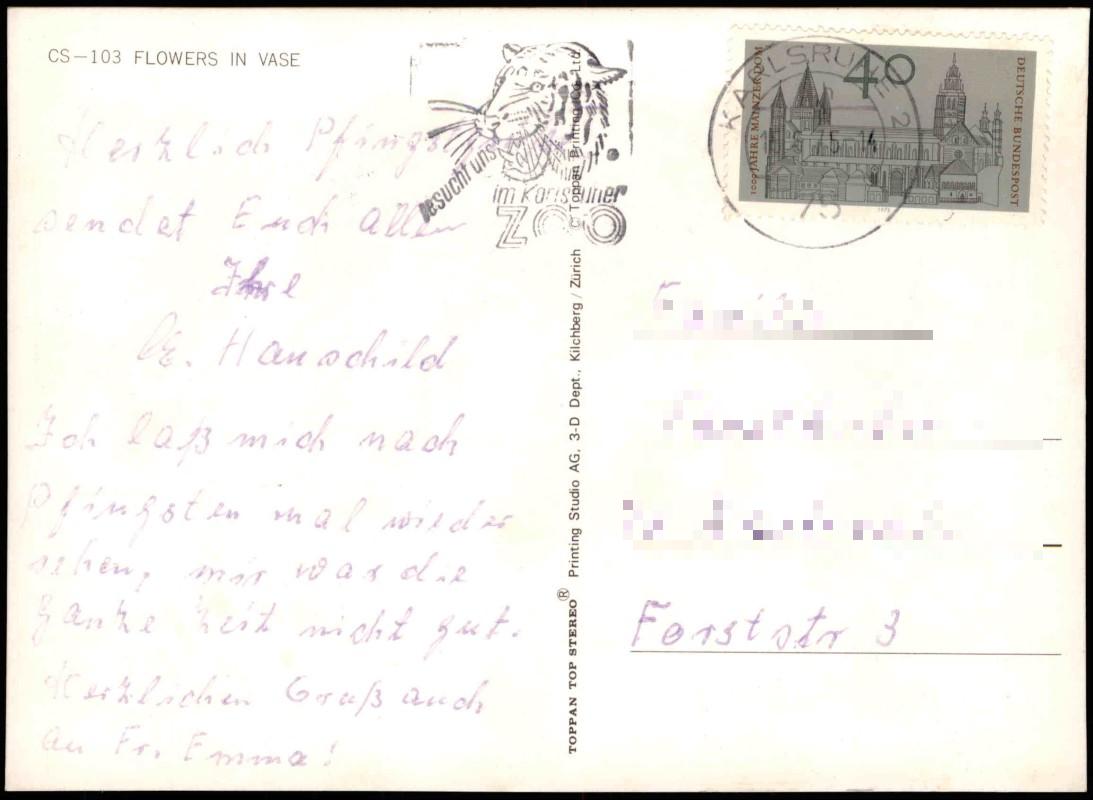 CS–103 FLOWERS IN VASE
Besucht uns
im Karlsruher
ZOO
KARLSRUHE 2
75
40
1000 JAHRE MAINZER DOM
DEUTSCHE BUNDESPOST
Herzlich Pfings
sendet Euch allen
Ihre
Hanschild
Ich laß mich nach
Pfingsten mal wieder
sehen, mir war die
ganze Zeit nicht gut.
Herzlichen Gruß auch
an Fr. Emma!
TOPPAN TOP STEREO® Printing Studio AG, 3-D Dept., Kilchberg / Zürich © Toppan Printing Co., Ltd.
Forststr 3